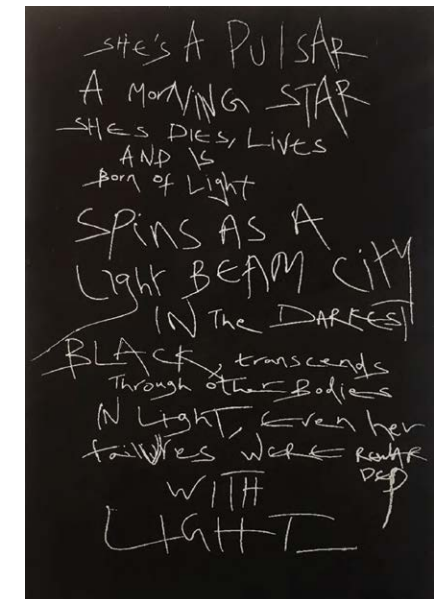 SHE'S A PULSAR
A MorNiNG STAR
SHES DIES, LIVES
AND IS
Born of Light
SPiNS AS A
Light BEAM CiTY
IN The DARKEST
BLACK, transcends
Through other Bodies
IN Light, Even her
failures WERE
WITH
LIGHT